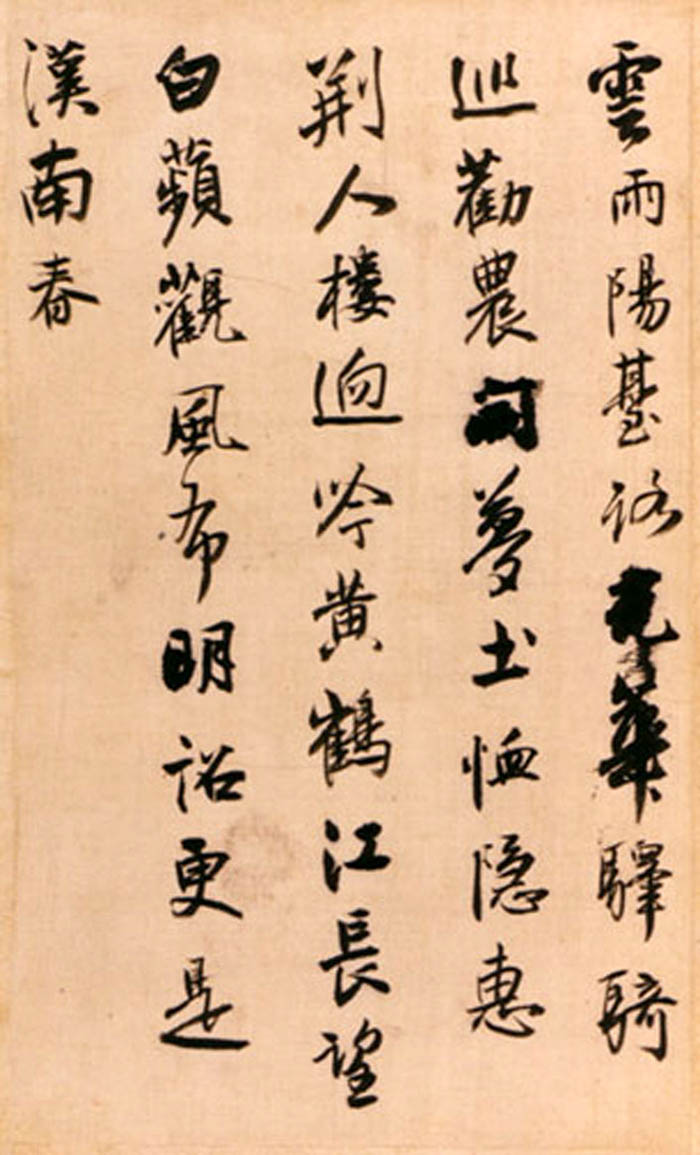 雲雨陽臺路光華驛騎
巡勸農開夢土恤隱惠
荊人樓迥吟黄鶴江長望
白蘋觀風布明詔更是
漢南春